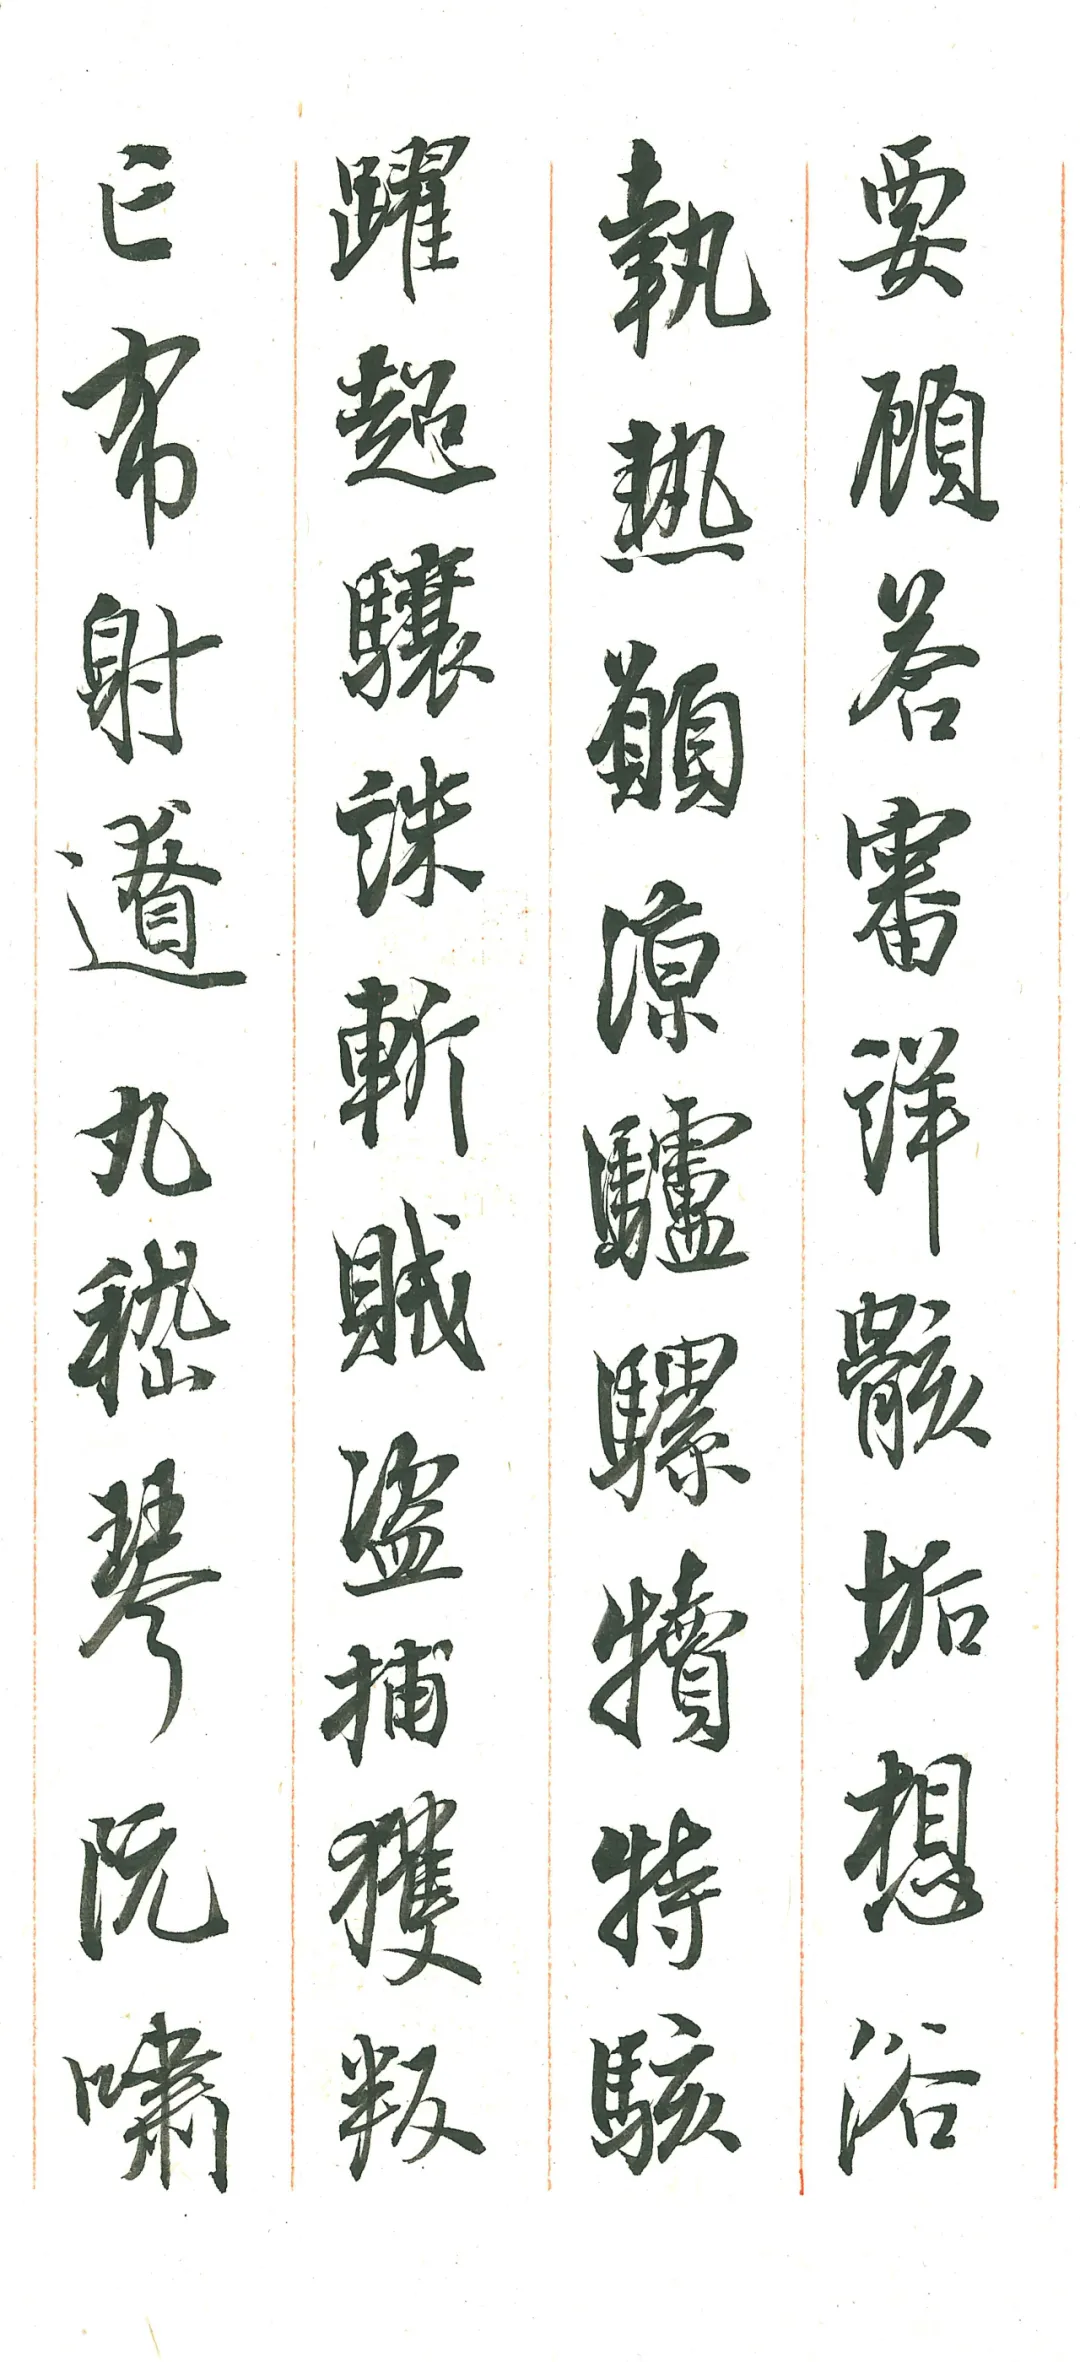 要頋荅審詳骸垢想浴
執熱願涼驢騾犢特駭
躍超驤誅斬賊盜捕獲叛
亡布射遼丸嵇琴阮嘯